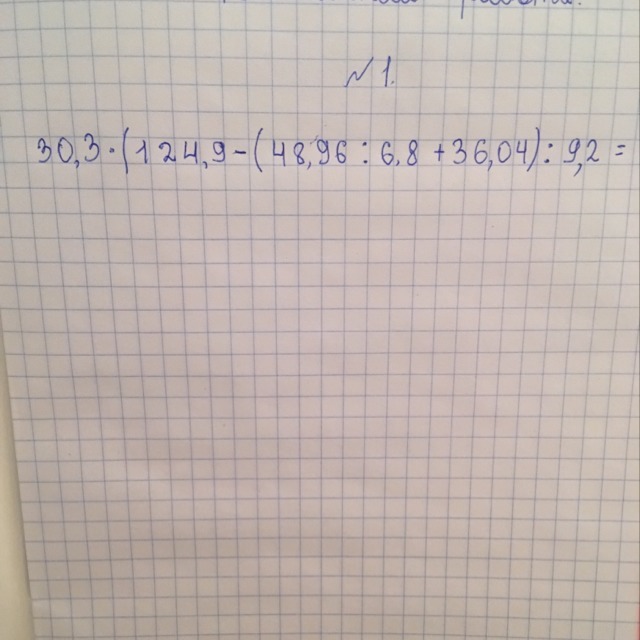 №1.
30,3·(124,9-(48,96:6,8+36,04):9,2=